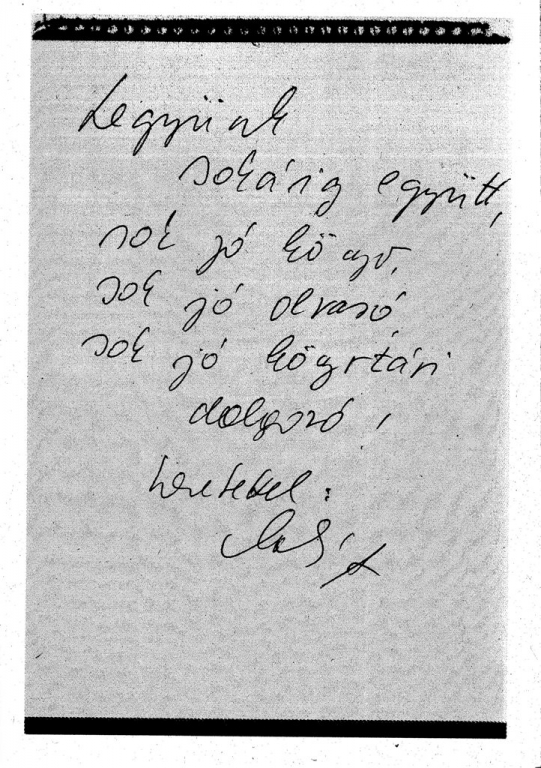 Legyünk
sokáig együtt,
sok jó könyv,
sok jó olvasó,
sok jó könyvtári
dolgozó!
Szeretettel: